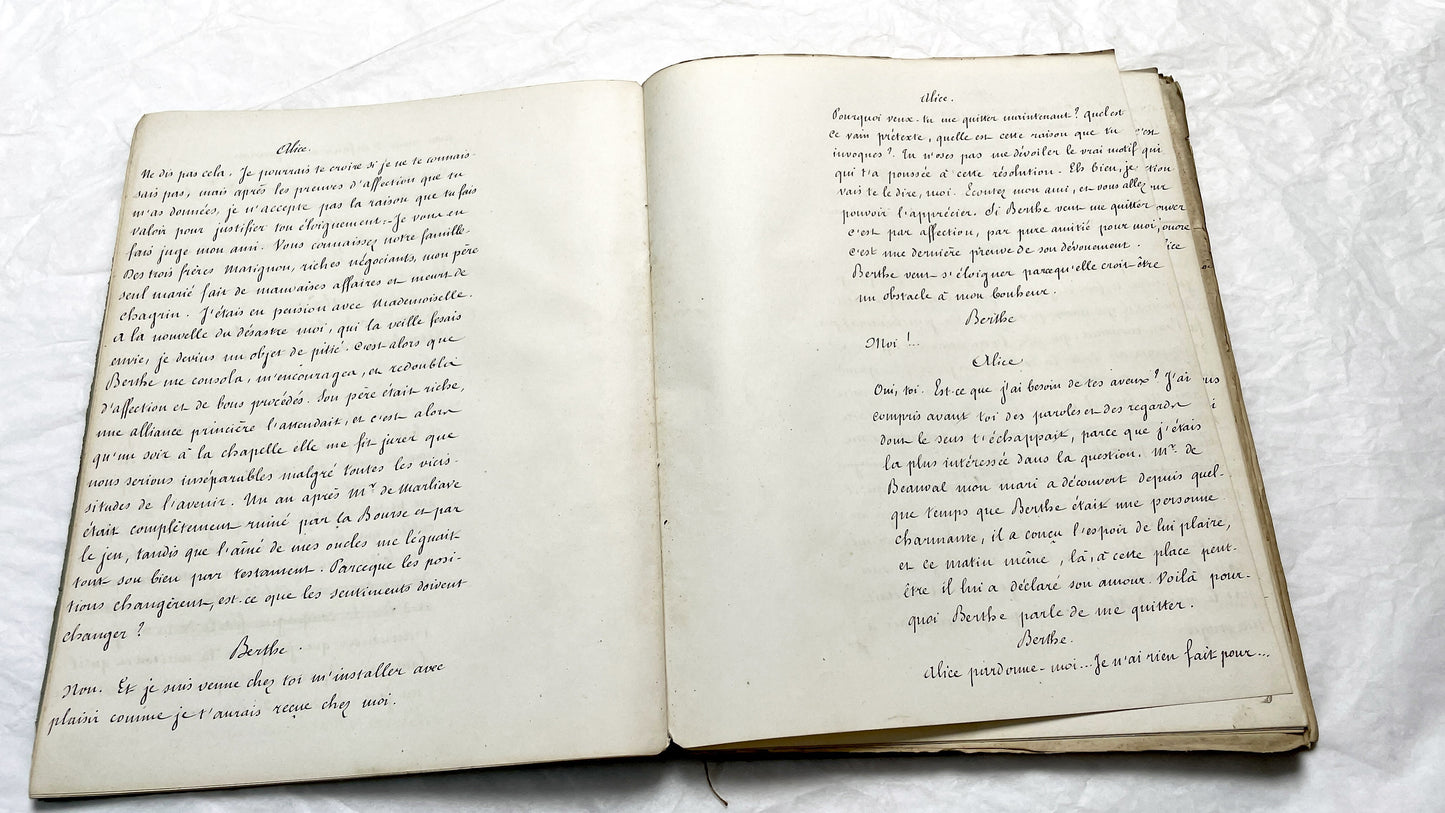 Alice.
Ne dis pas cela. Je pourrais te croire si je ne te connais-
sais pas, mais après les preuves d'affection que tu
m'as données, je n'accepte pas la raison que tu fais
valoir pour justifier ton éloignement:- Je vous en
fais juge mon ami. Vous connaissez notre famille.
Des trois frères Matignon, riches négociants, mon père
seul marié fait de mauvaises affaires et meurt de
chagrin. J'étais en pension avec Mademoiselle.
A la nouvelle du désastre moi, qui la veille fesais
envie, je devins un objet de pitié. C'est alors que
Berthe me consola, m'encouragea, et redoubla
d'affection et de bons procédés. Son père était riche,
une alliance princière l'attendait, et c'est alors
qu'un soir à la chapelle elle me fit jurer que
nous serions inséparables malgré toutes les vicis-
situdes de l'avenir. Un an après Mr. de Marliave
était complètement ruiné par la Bourse et par
le jeu, tandis que l'aîné de mes oncles me léguait
tout son bien par testament. Parceque les posi-
tions changèrent, est-ce que les sentiments doivent
changer ?
Berthe.
Non. Et je suis venue chez toi m'installer avec
plaisir comme je t'aurais reçue chez moi.
Alice.
Pourquoi veux-tu me quitter maintenant ? quel est
ce vain prétexte, quelle est cette raison que tu
invoques ? Tu n'oses pas me dévoiler le vrai motif
qui t'a poussée à cette résolution. Eh bien, je
vais te le dire, moi. Ecoutez mon ami, et vous allez
pouvoir l'apprécier. Si Berthe veut me quitter
c'est par affection, par pure amitié pour moi,
c'est une dernière preuve de son dévouement.
Berthe veut s'éloigner parcequ'elle croit être
un obstacle à mon bonheur.
Berthe
Moi !..
Alice
Oui, toi. Est-ce que j'ai besoin de tes aveux ? J'ai
compris avant toi des paroles et des regards
dont le sens t'échappait, parce que j'étais
la plus intéressée dans la question. Mr. de
Beauval mon mari a découvert depuis quel-
que temps que Berthe était une personne
charmante, il a conçu l'espoir de lui plaire,
et ce matin même, là, à cette place peut-
être il lui a déclaré son amour. Voilà pour-
quoi Berthe parle de me quitter.
Berthe.
Alice pardonne-moi... Je n'ai rien fait pour...